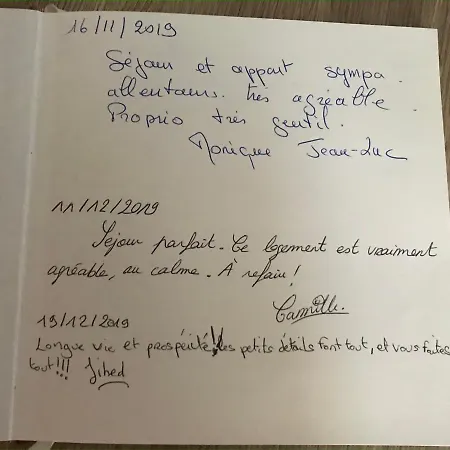 16/11/2019
Séjour et appart sympa.
allentours. très agréable.
Proprio très gentil.
Monique Jean-Luc
11/12/2019
Séjour parfait. Ce logement est vraiment
agréable, au calme. À refaire!
Camille.
19/12/2019
Longue vie et prospérité!! les petits détails font tout, et vous faites
tout!!! Jihed